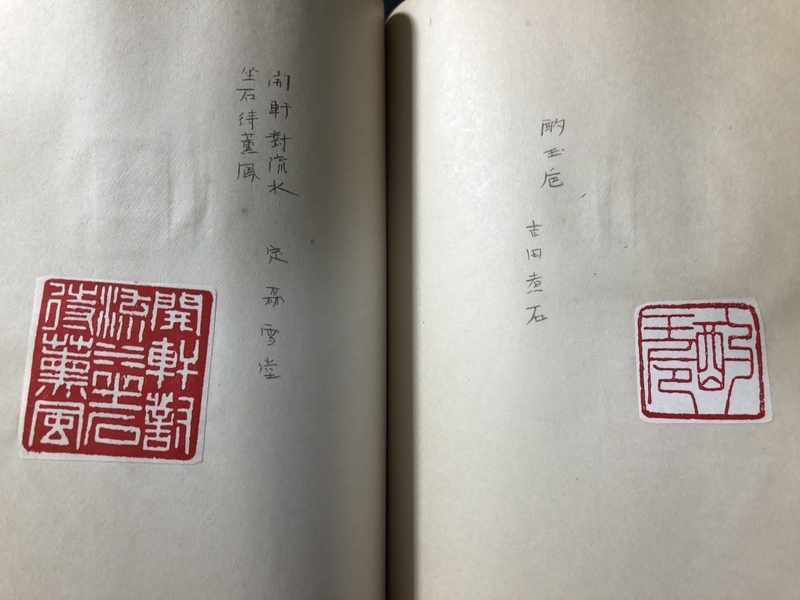 酌玉巵
吉田煮石
酌
玉巵
開軒對流水
坐石待薫風
定森雪堂
開軒對
流水坐石
待薫風